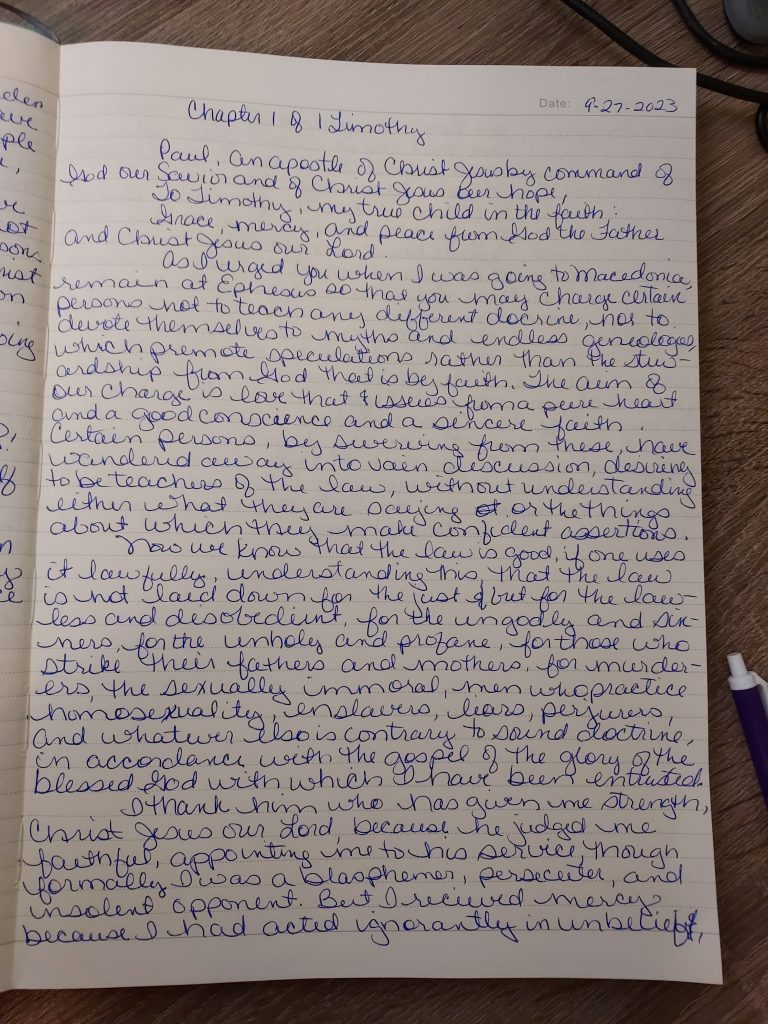 den
ave
ple
ot
oon
ist
on
oing
Date: 9-27-2023
Chapter 1 of 1 Timothy
Paul, an apostle of Christ Jesus by command of
God our Savior and of Christ Jesus our hope,
To Timothy, my true child in the faith:
Grace, mercy, and peace from God the Father
and Christ Jesus our Lord.
As I urged you when I was going to Macedonia,
remain at Ephesus so that you may charge certain
persons not to teach any different docrine, nor to
devote themselves to myths and endless geneologies,
which premote speculations rather than the stew-
ardship from God that is by faith. The aim of
our charge is love that issues from a pure heart
and a good conscience and a sincere faith.
Certain persons, by swerving from these, have
wandered away into vain discussion, desiring
to be teachers of the law, without understanding
either what they are saying or the things
about which they make confident assertions.
Now we know that the law is good, if one uses
it lawfully, understanding this, that the law
is not laid down for the just but for the law-
less and disobedient, for the ungodly and sin-
ners, for the unholy and profane, for those who
strike their fathers and mothers, for murder-
ers, the sexually immoral, men who practice
homosexuality, enslavers, liars, perjurers,
and whatever else is contrary to sound doctrine,
in accordance with the gospel of the glory of the
blessed God with which I have been entrusted.
I thank him who has given me strength,
Christ Jesus our Lord, because he judged me
faithful, appointing me to his service, though
formally I was a blasphemer, persecuter, and
insolent opponent. But I recieved mercy
because I had acted ignorantly in unbelief,